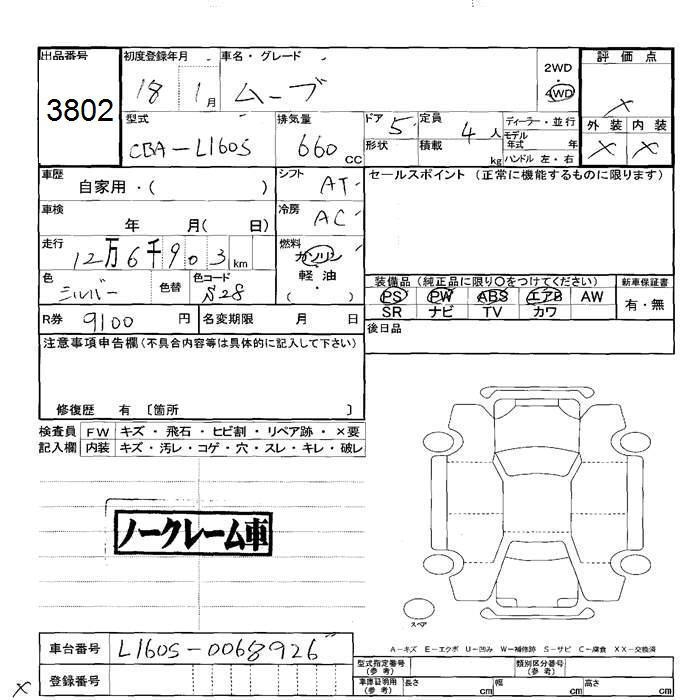 出品番号 初度登録年月 車名・グレード 2WD・4WD 評価点
3802 18 1月 ムーブ ×
型式 排気量 ドア 5 定員 4人 ディーラー・並行 外装 内装
CBA-L160S 660cc 形状 積載 kg モデル年式 年 × ×
ハンドル 左・右
車歴 自家用・( ) シフト AT セールスポイント (正常に機能するものに限ります)
車検 年 月( 日) 冷房 AC
走行 12万6千903km 燃料 ガソリン・軽油・( )
色 シルバー 色替 色コード S28 装備品 (純正品に限り○をつけてください) 新車保証書
PS PW ABS エアB AW 有・無
SR ナビ TV カワ
R券 9100円 名変期限 月 日 後日品
注意事項申告欄 (不具合内容等は具体的に記入して下さい)
修復歴 有 〔箇所 〕
検査員 FW キズ・飛石・ヒビ割・リペア跡・×要
記入欄 内装 キズ・汚レ・コゲ・穴・スレ・キレ・破レ
ノークレーム車
スペア
A-キズ E-エクボ U-凹み W-補修跡 S-サビ C-腐食 XX-交換済
車台番号 L160S-0068926
型式指定番号(参考) 類別区分番号(参考)
登録番号
車庫証明用(参考) 長さ cm 幅 cm 高さ cm
×